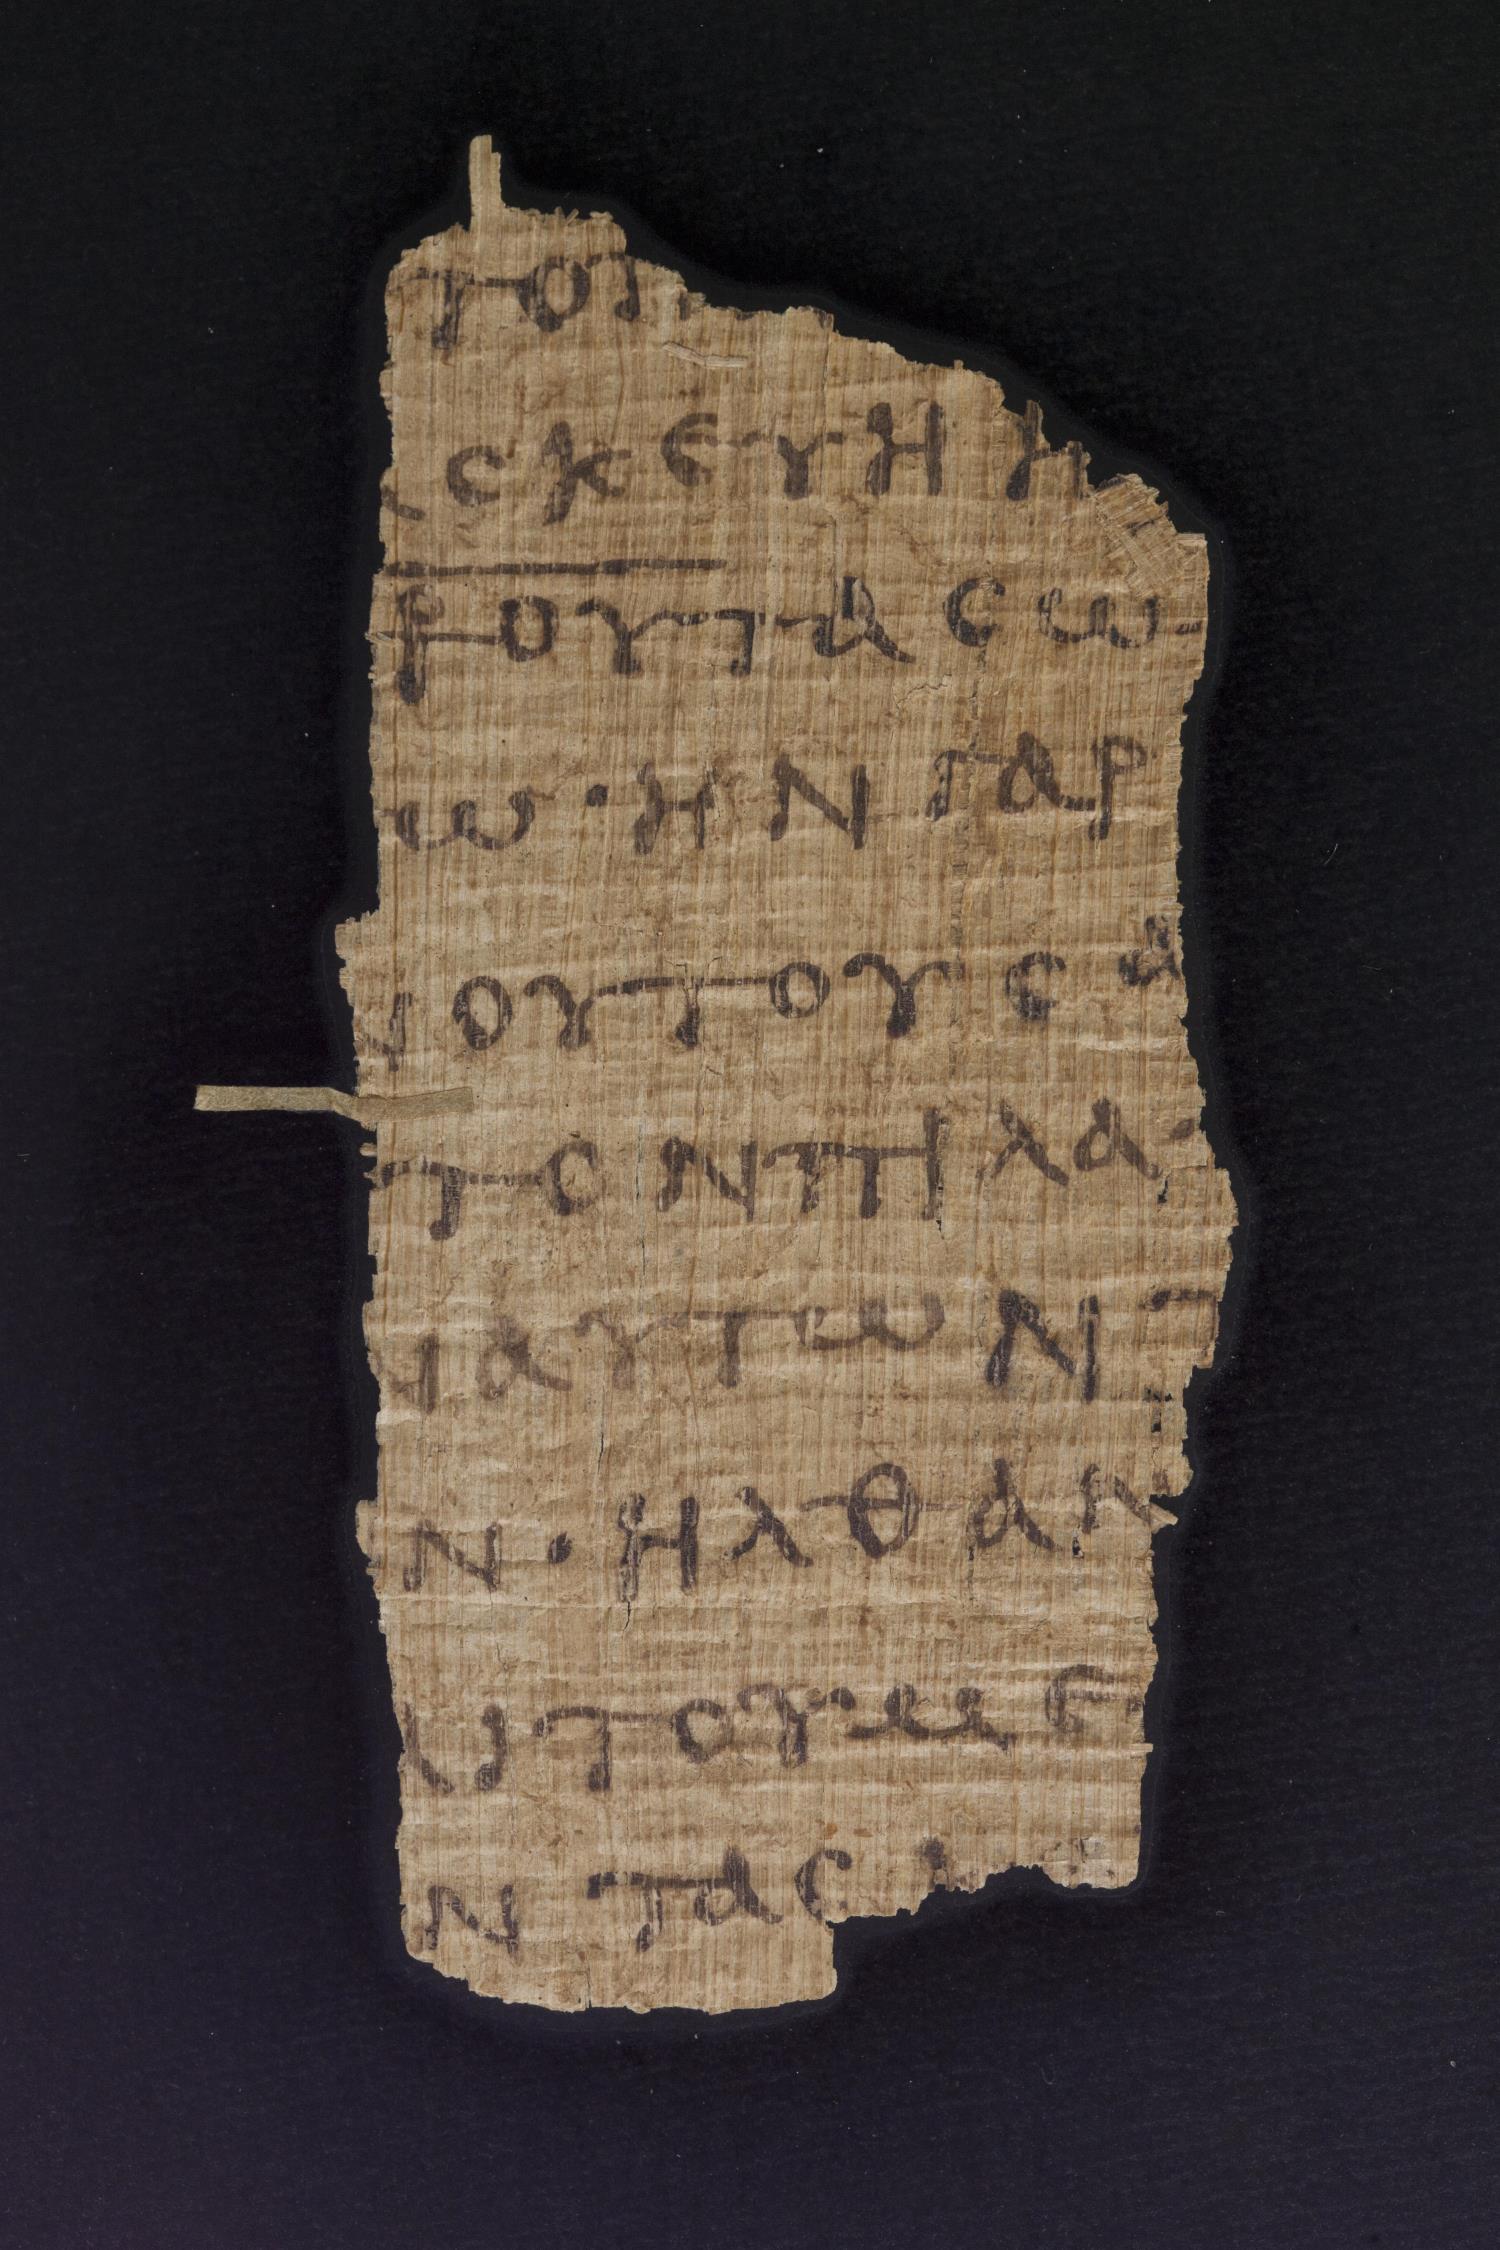 τοπ
α σκευη η
ρου τα εω
ω · ην γαρ
ν ουτους α
τον πηλα
ι αυτων τ
ν · ηλθαν
αι του με
ν τας